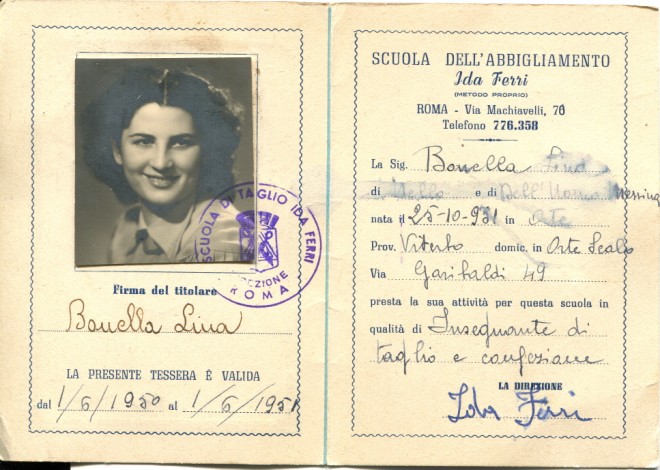 SCUOLA DI TAGLIO IDA FERRI
DIREZIONE
ROMA
Firma del titolare
Bonella Lina
LA PRESENTE TESSERA È VALIDA
dal 1/6/1950 al 1/6/1951
SCUOLA DELL'ABBIGLIAMENTO
Ida Ferri
(METODO PROPRIO)
ROMA - Via Machiavelli, 70
Telefono 776.358
La Sig. Bonella
di e di Dell'Uomo
nata il 25-10-931 in Orte
Prov. Viterbo domic. in Orte Scalo
Via Garibaldi 49
presta la sua attività per questa scuola in
qualità di Insegnante di
taglio e confezione
LA DIREZIONE
Ida Ferri